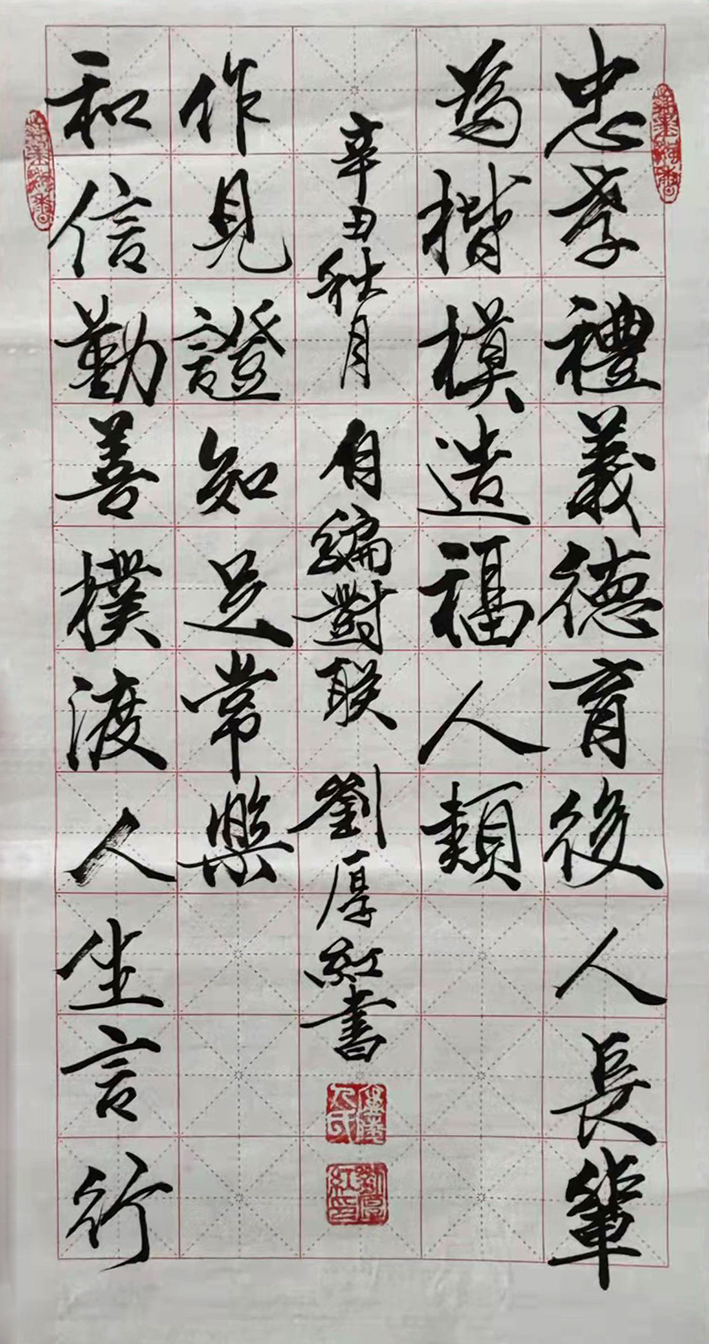 忠孝禮義德育後人長輩
為楷模造福人類
和信勤善樸渡人生言行
作見證知足常樂
辛丑秋月 自編對联 劉厚紅書
劉厚紅印